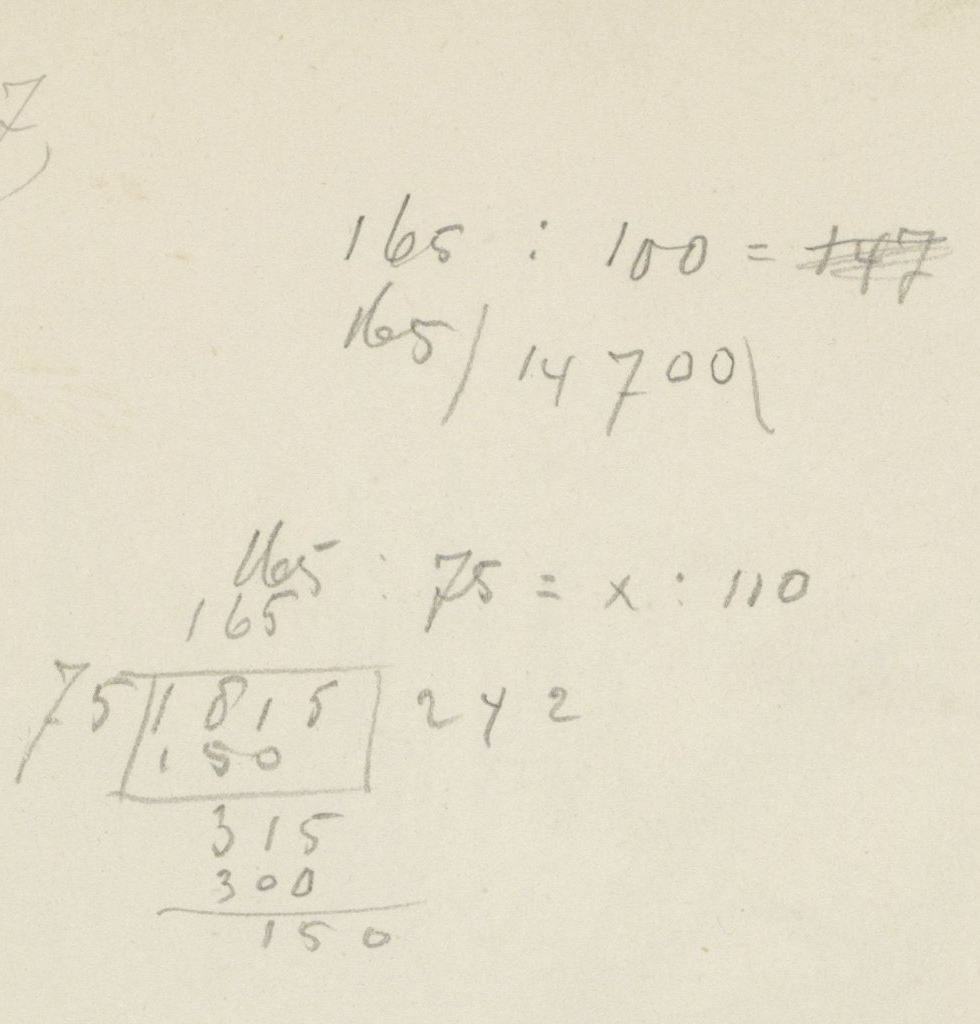 7
165 : 100 = 147
165 / 14700 \
165 : 75 = x : 110
165
75 / 1815 242
150
315
300
150